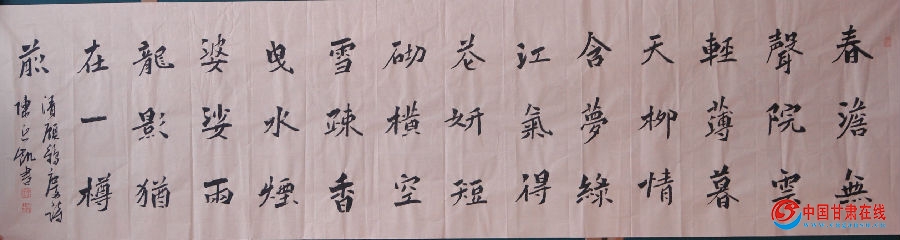 春澹無
聲院雲
輕薄暮
天柳情
含夢綠
江氣得
花妍短
砌橫空
雪疎香
曳水煙
婆娑雨
龍影猶
在一樽
前
清顧鶴慶詩
陳正凱書
中国甘肃在线